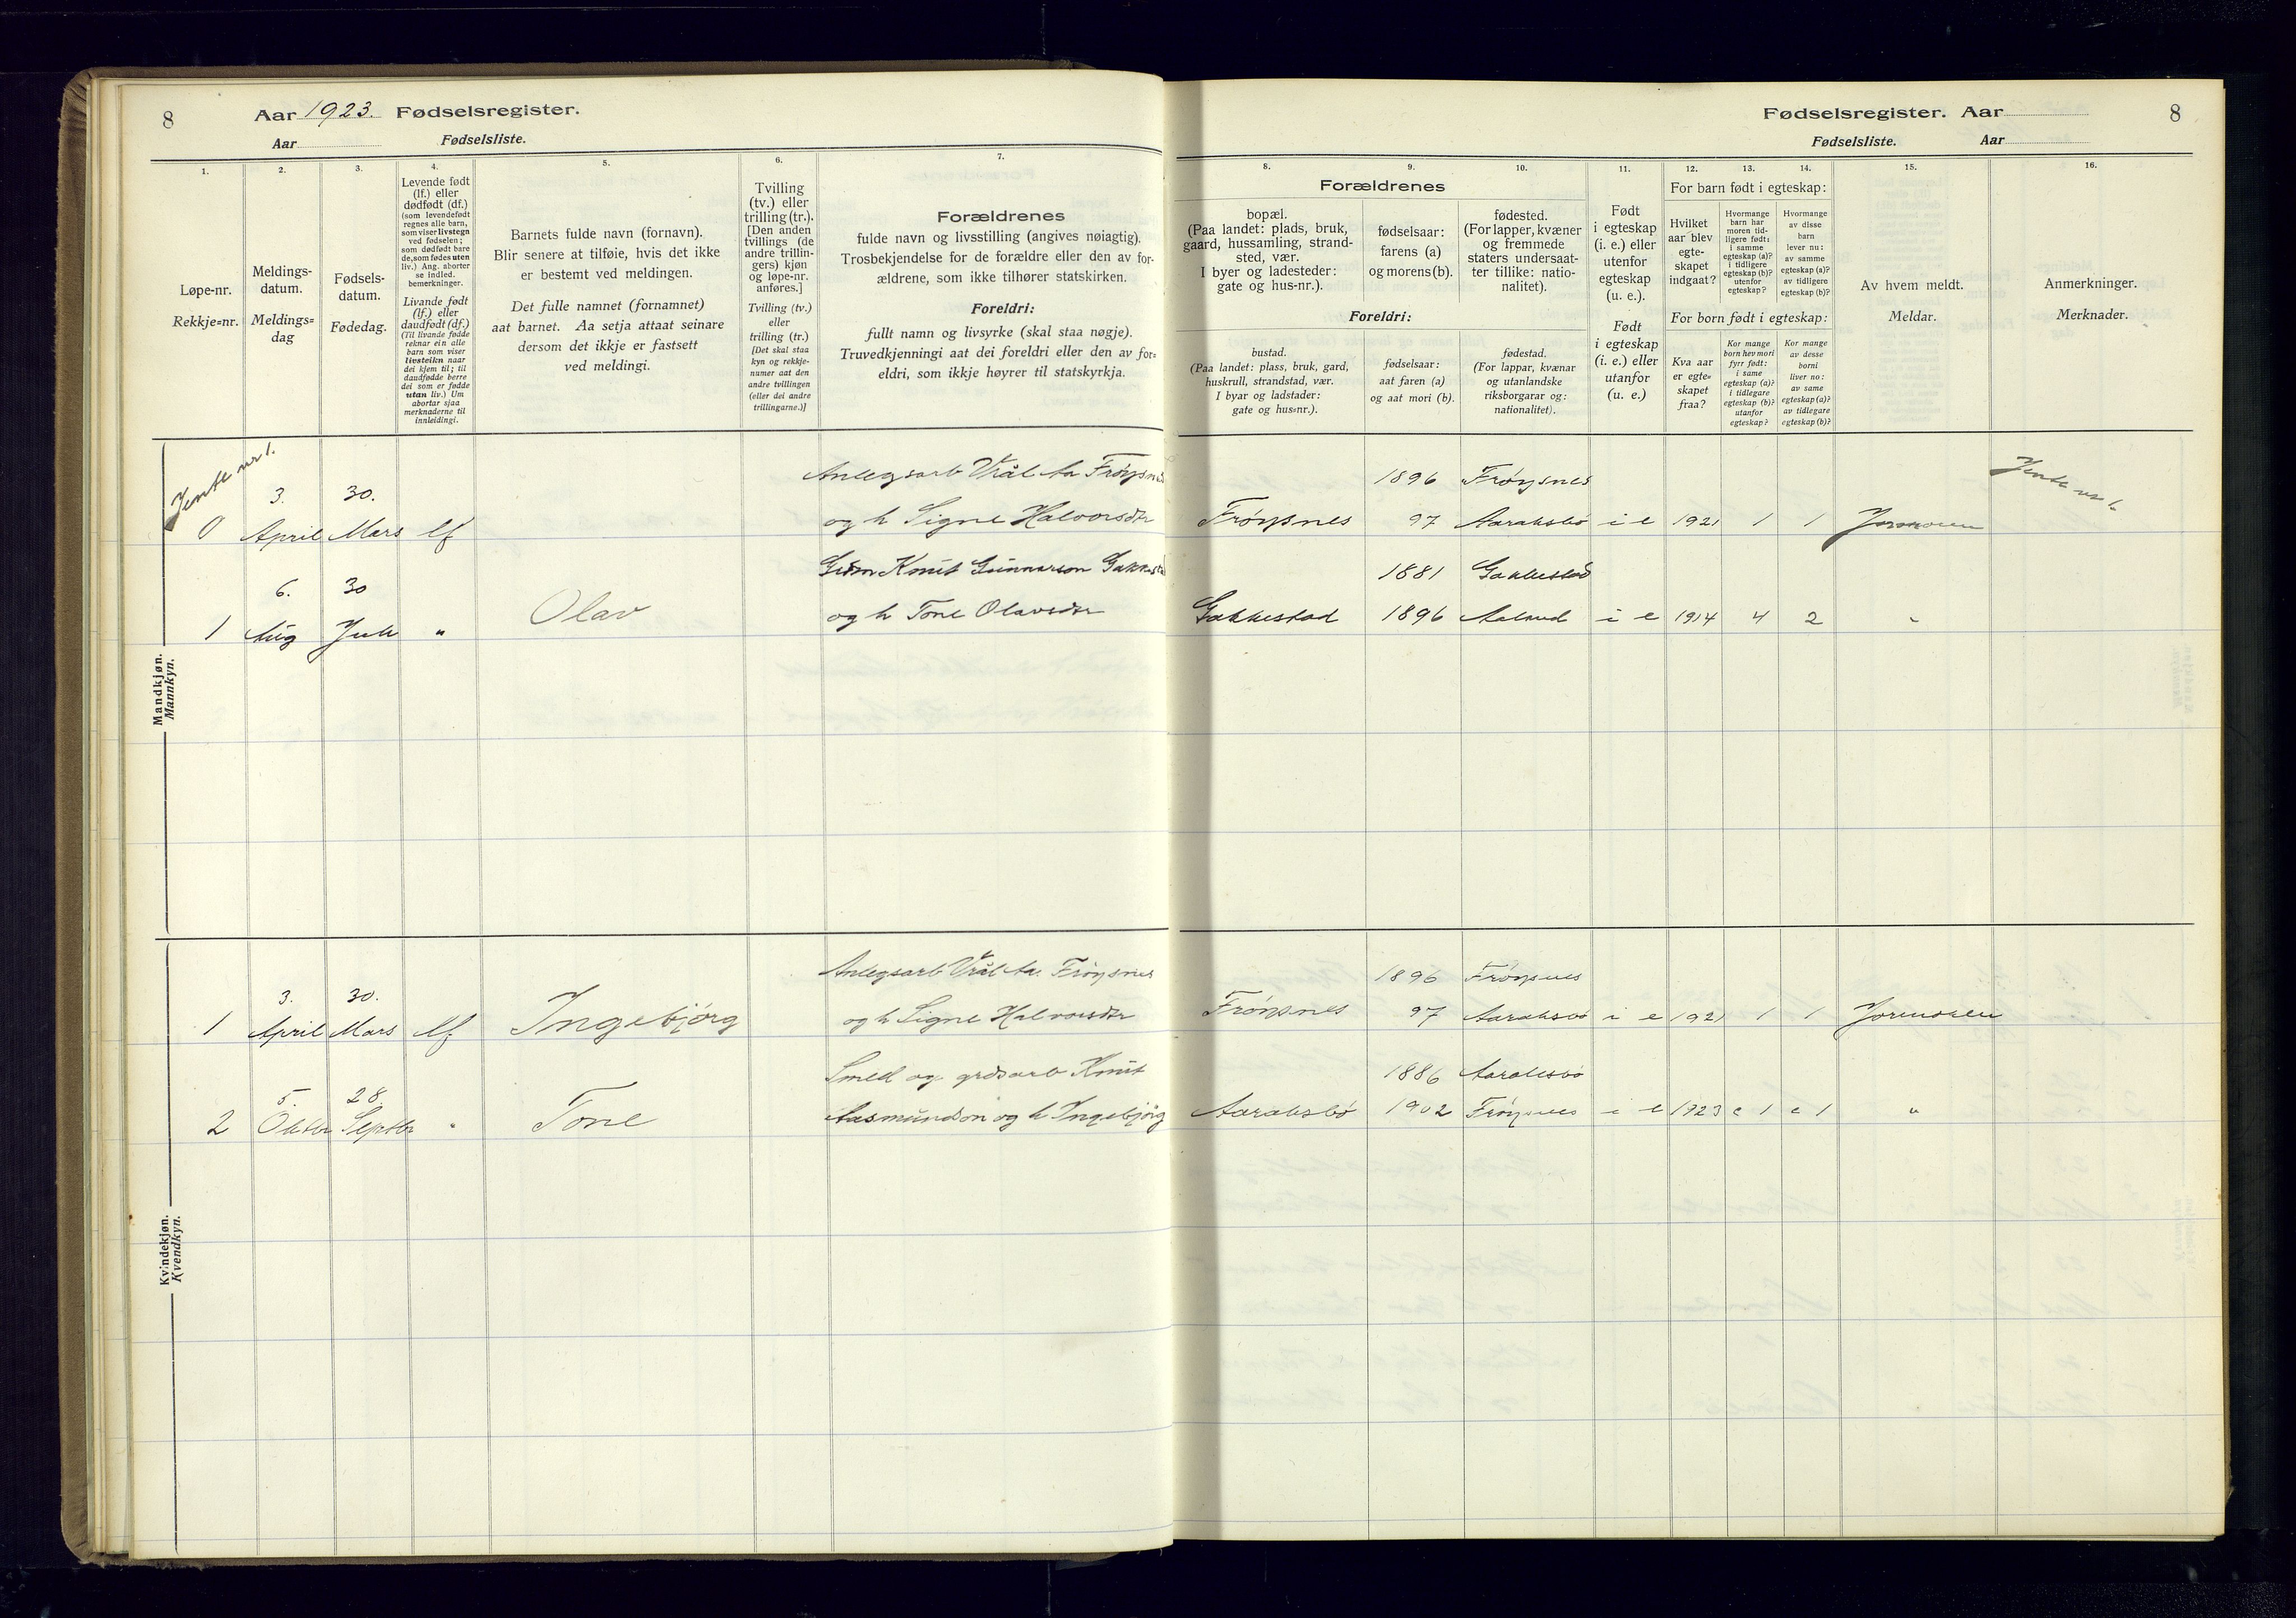 8
Aar 1923. Fødselsregister.
Aar Fødselsliste.
1.
Løpe-nr.
Rekkje=nr.
2.
Meldings-
datum.
Meldings=
dag
3.
Fødsels-
datum.
Fødedag.
4.
Levende født
(lf.) eller
dødfødt (df.)
(som levendefødt
regnes alle barn,
som viser livstegn
ved fødselen;
som dødfødt bare
de, som fødes uten
liv.) Ang. aborter
se indled.
bemerkninger.
Livande født
(lf.) eller
daudfødt (df.)
(Til livande fødde
reknar ein alle
barn som viser
livsteikn naar
dei kjem til; til
daudfødde berre
dei som er fødde
utan liv.) Um
abortar sjaa
merknaderne til
innleidingi.
5.
Barnets fulde navn (fornavn).
Blir senere at tilføie, hvis det ikke
er bestemt ved meldingen.
Det fulle namnet (fornamnet)
aat barnet. Aa setja attaat seinare
dersom det ikkje er fastsett
ved meldingi.
6.
Tvilling
(tv.) eller
trilling (tr.).
[Den anden
tvillings (de
andre trillin-
gers) kjøn
og løpe-nr.
anføres.]
Tvilling (tv.)
eller
trilling (tr.)
[Det skal staa
kyn og rekkje-
numer aat den
andre tvillingen
(eller dei andre
trillingarne.)]
7.
Forældrenes
fulde navn og livsstilling (angives nøiagtig).
Trosbekjendelse for de forældre eller den av for-
ældrene, som ikke tilhører statskirken.
Foreldri:
fullt namn og livsyrke (skal staa nøgje).
Truvedkjenningi aat dei foreldri eller den av for=
eldri, som ikkje høyrer til statskyrkja.
Fødselsregister. Aar 8
Fødselsliste. Aar
8.
Forældrenes
bopæl.
(Paa landet: plads, bruk,
gaard, hussamling, strand-
sted, vær.
I byer og ladesteder:
gate og hus-nr.).
Foreldri:
bustad.
(Paa landet: plass, bruk, gard,
huskrull, strandstad, vær.
I byar og ladstader:
gate og hus=nr.).
9.
fødselsaar:
farens (a)
og morens (b).
fødselsaar:
aat faren (a)
og aat mori (b).
10.
fødested.
(For lapper, kvæner
og fremmede
staters undersaat-
ter tillike: natio-
nalitet).
fødestad.
(For lappar, kvænar
og utanlandske
riksborgarar og:
nationalitet).
11.
Født
i egteskap
(i. e.) eller
utenfor
egteskap
(u. e.).
Født
i egteskap
(i. e.) eller
utanfor
(u. e.)
12. 13. 14.
For barn født i egteskap:
Hvilket
aar blev
egte-
skapet
indgaat?
Hvormange
barn har
moren tid-
ligere født:
i samme
egteskap (a)?
i tidligere
egteskap (b)?
utenfor
egteskap?
Hvormange
av disse
barn
lever nu:
av samme
egteskap (a)?
av tidligere
egteskap (b)?
For born født i egteskap:
Kva aar
er egte=
skapet
fraa?
Kor mange
born hev mori
fyrr født:
i same
egteskap (a)?
i tidlegare
egteskap (b)?
utanfor
egteskap?
Kor mange
av desse
borni
liver no:
av same
egteskap (a)?
av tidlegare
egteskap (b)?
15.
Av hvem meldt.
Meldar.
16.
Anmerkninger.
Merknader.
Mandkjøn.
Mannkyn.
Jente nr 1.
3. 30. Anlegsarb Vrål Aa Frøysnes 1896 Frøysnes Jente nr 1
0 April Mars lf og h Signe Halvorsdtr Frøysnes 97 Aaraksbø i e 1921 1 1
6. 30 Knut Gunnarson 1881
1 Aug Juli " Olav og h Tone Olavsdtr 1896 i e 1914 4 2 "
Kvindekjøn.
Kvendkyn.
3. 30. Anlegsarb Vrål Aa. Frøysnes 1896 Frøysnes
1 April Mars lf Ingebjørg og h Signe Halvorsdtr Frøysnes 97 Aaraksbø i e 1921 1 1
5. 28. Smed og grdsarb Knut 1886 Aaraksbø
2 Oktbr Septbr " Tone Aasmundson og h Ingebjørg Aaraksbø 1902 Frøysnes i e 1923 1 1 "